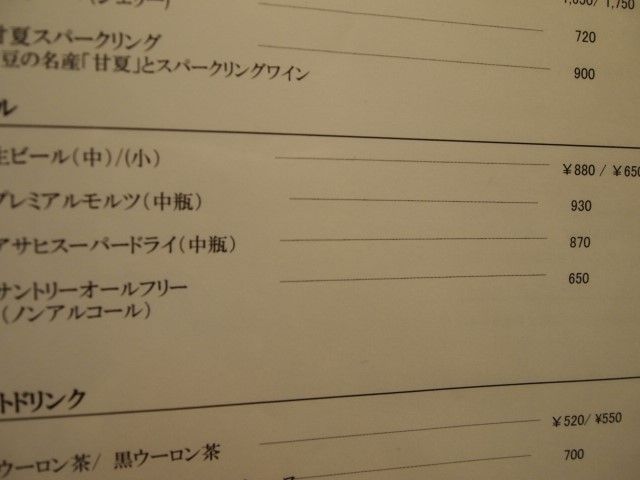 (シェリー) 1,050/ 1,750
甘夏スパークリング 720
豆の名産「甘夏」とスパークリングワイン 900
ル
生ビール(中)/(小) ¥880 / ¥650
プレミアルモルツ(中瓶) 930
アサヒスーパードライ(中瓶) 870
サントリーオールフリー 650
(ノンアルコール)
トドリンク
ウーロン茶/ 黒ウーロン茶 ¥520/ ¥550
700